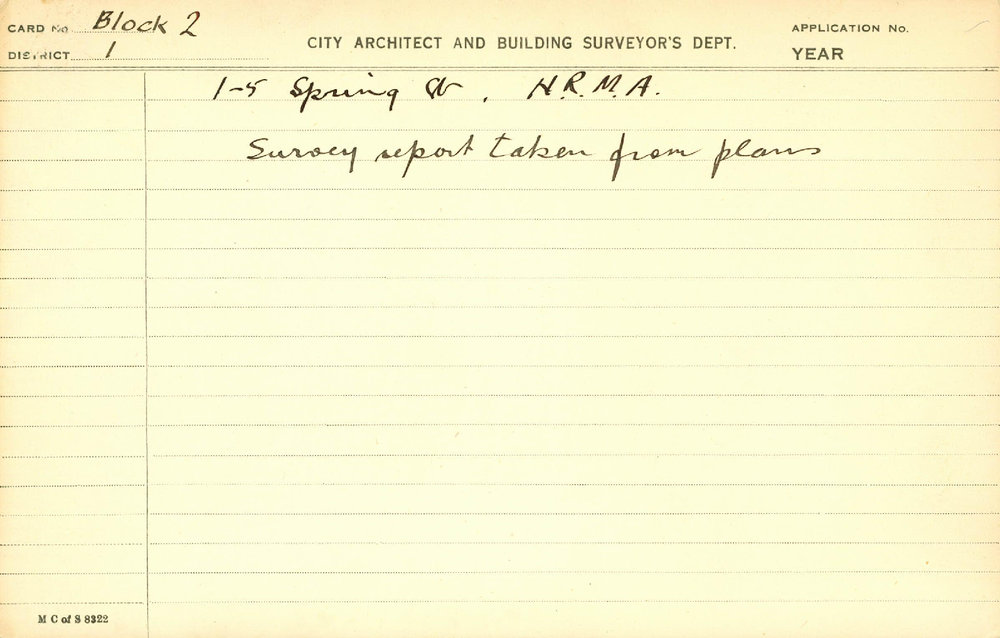 CARD No Block 2
DISTRICT 1
CITY ARCHITECT AND BUILDING SURVEYOR'S DEPT.
APPLICATION No.
YEAR
1-5 Spring St, H.R.M.A.
Survey report taken from plans
M C of S 8322